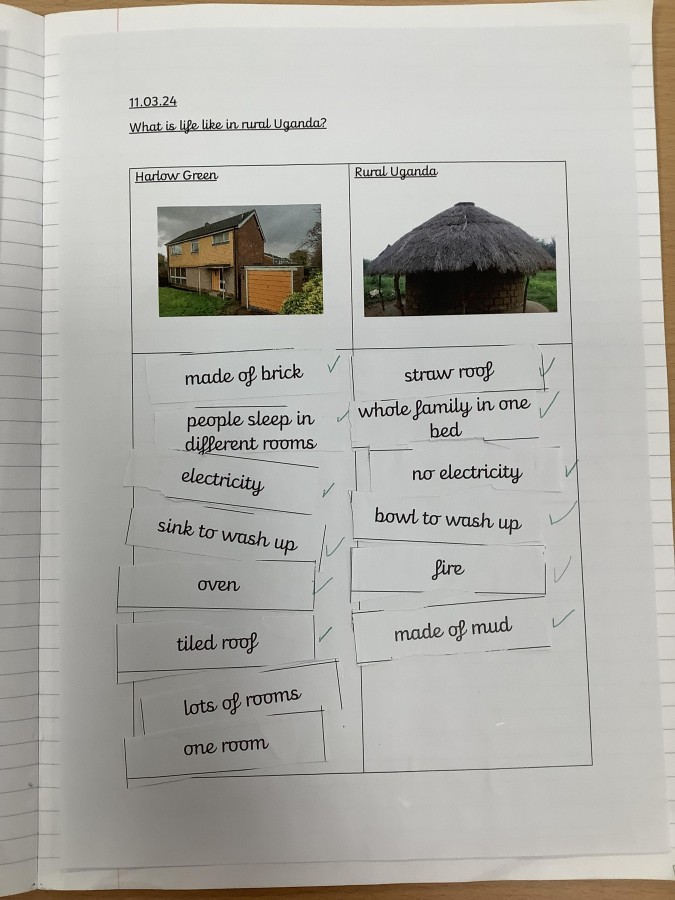 11.03.24
What is life like in rural Uganda?
Harlow Green
Rural Uganda
made of brick
straw roof
people sleep in
different rooms
whole family in one
bed
electricity
no electricity
sink to wash up
bowl to wash up
oven
fire
tiled roof
made of mud
lots of rooms
one room